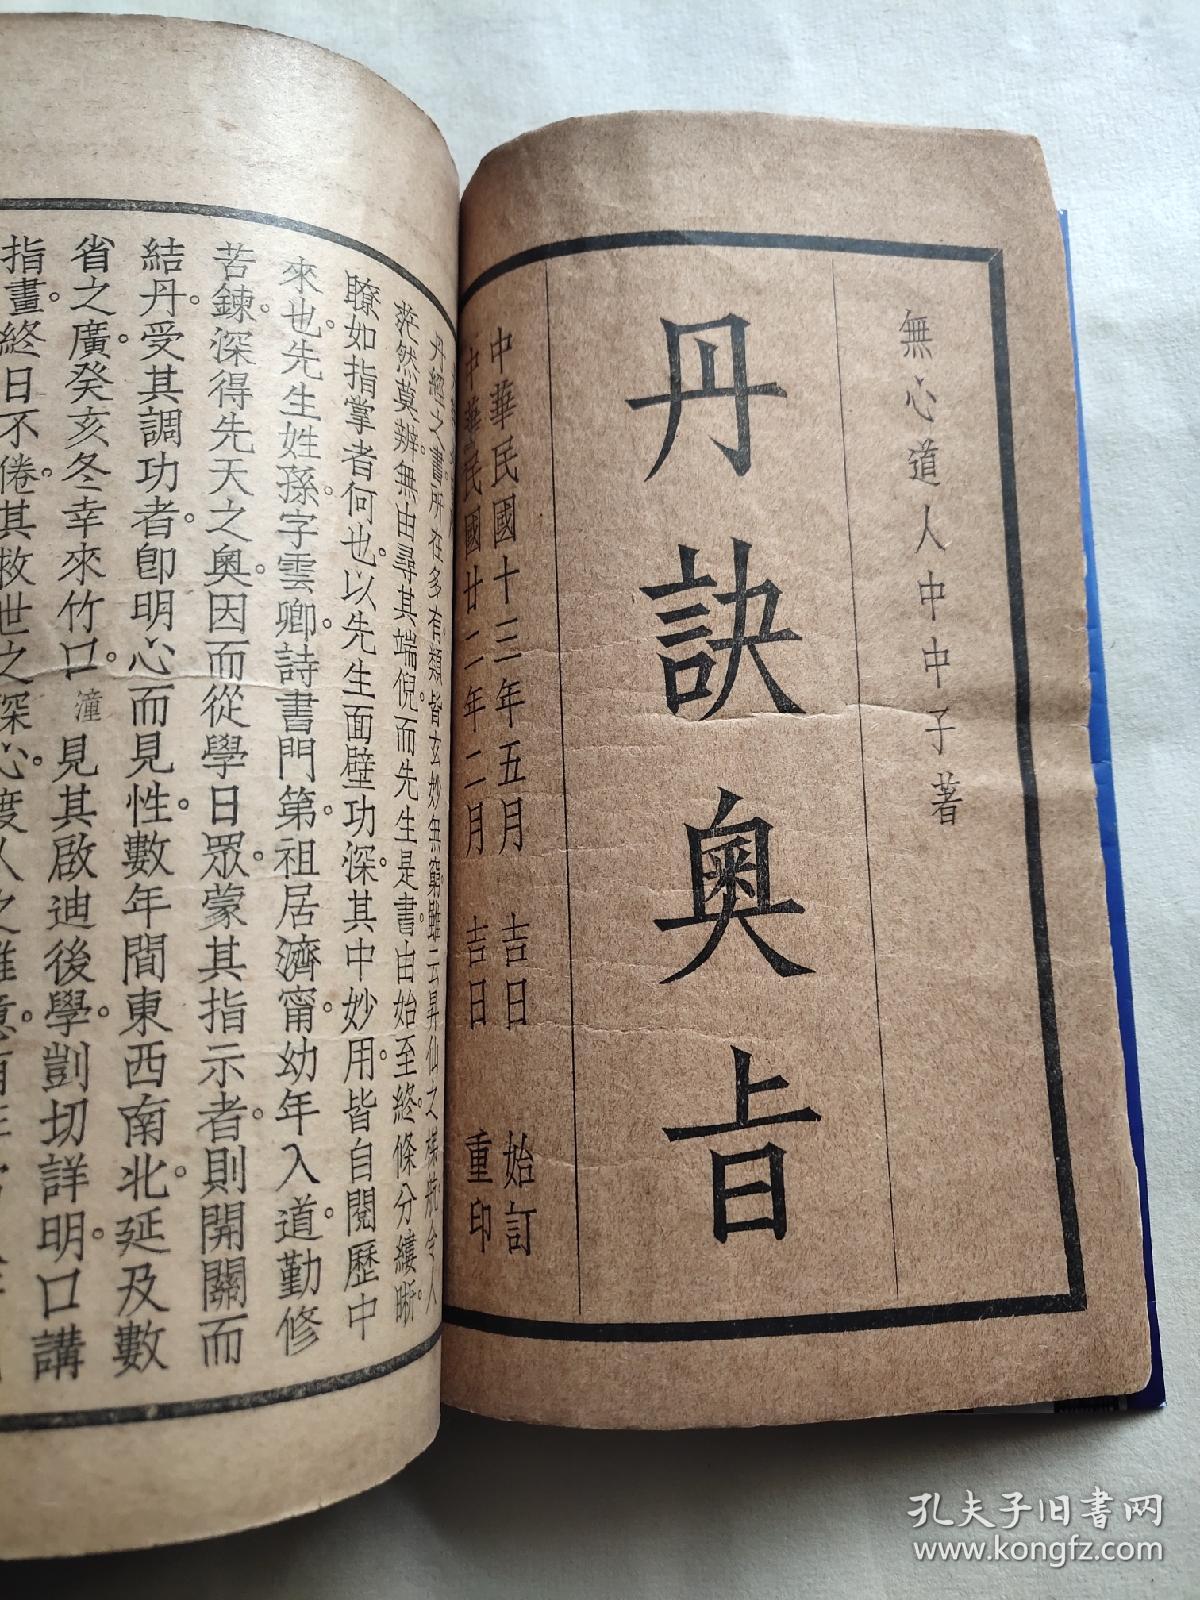 無心道人中中子著
丹訣奧旨
中華民國十三年五月 吉日 始訂
中華民國廿二年二月 吉日 重印
丹經之書所在多有類皆玄妙無窮雖云昇仙之梯航令人
茫然莫辨無由尋其端倪而先生是書由始至終條分縷晰
瞭如指掌者何也以先生面壁功深其中妙用皆自閱歷中
來也先生姓孫字雲卿詩書門第祖居濟甯幼年入道勤修
苦鍊深得先天之奧因而從學日眾蒙其指示者則開關而
結丹受其調功者卽明心而見性數年間東西南北延及數
省之廣癸亥冬幸來竹口潼見其啟迪後學剴切詳明口講
指畫終日不倦其救世之深心度人之雅意
孔夫子旧书网
www.kongfz.com